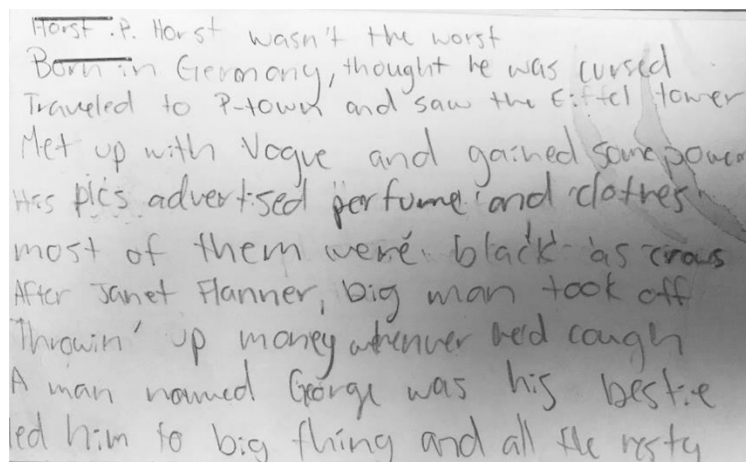 Horst .P. Horst wasn't the worst
Born in Germany, thought he was cursed
Traveled to P-town and saw the Eiffel tower
Met up with Vogue and gained some power
His pics advertised perfume and clothes
most of them were black as crows
After Janet Flanner, big man took off
Throwin' up money whenver he'd cough
A man named George was his bestie
led him to big thing and all the resty